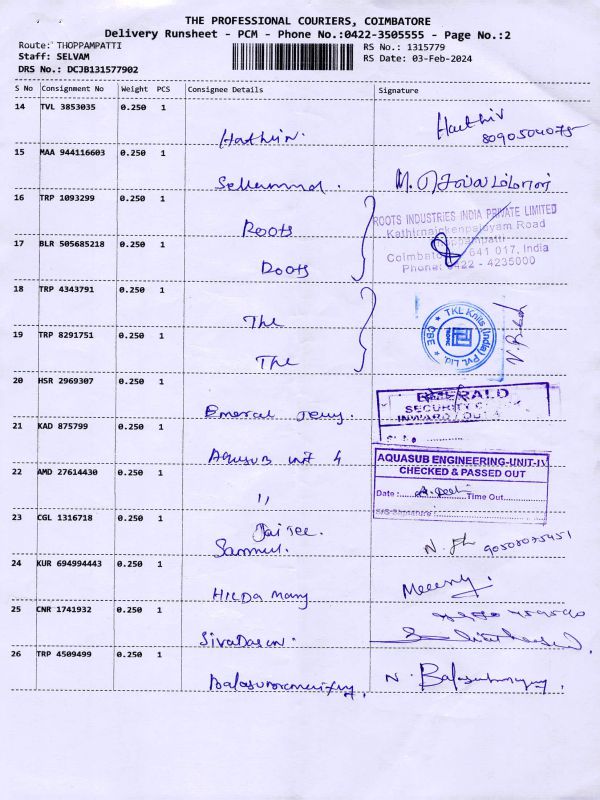 THE PROFESSIONAL COURIERS, COIMBATORE
Delivery Runsheet - PCM - Phone No.:0422-3505555 - Page No.:2
Route: THOPPAMPATTI RS No.: 1315779
Staff: SELVAM RS Date: 03-Feb-2024
DRS No.: DCJB131577902
S No Consignment No Weight PCS Consignee Details Signature
14 TVL 3853035 0.250 1
8090504075
15 MAA 944116603 0.250 1
16 TRP 1093299 0.250 1
Roots
ROOTS INDUSTRIES INDIA PRIVATE LIMITED
Kathirnaickenpalayam Road
Thoppampatti
17 BLR 505685218 0.250 1
Roots
Coimbatore 641 017, India
Phone: 0422 - 4235000
18 TRP 4343791 0.250 1
The
TKL Knits (India) Pvt. Ltd. CBE
19 TRP 8291751 0.250 1
The
20 HSR 2969307 0.250 1
EMERALD
SECURITY
INWARD / OUT
21 KAD 875799 0.250 1
Aquasub unit 4
AQUASUB ENGINEERING-UNIT-IV
CHECKED & PASSED OUT
22 AMD 27614430 0.250 1
"
Date : Time Out
S/G Signature :
23 CGL 1316718 0.250 1
Jaisee.
24 KUR 694994443 0.250 1
HILDA Mary
25 CNR 1741932 0.250 1
Sivadasan.
26 TRP 4509499 0.250 1
N. Balasubramaniam